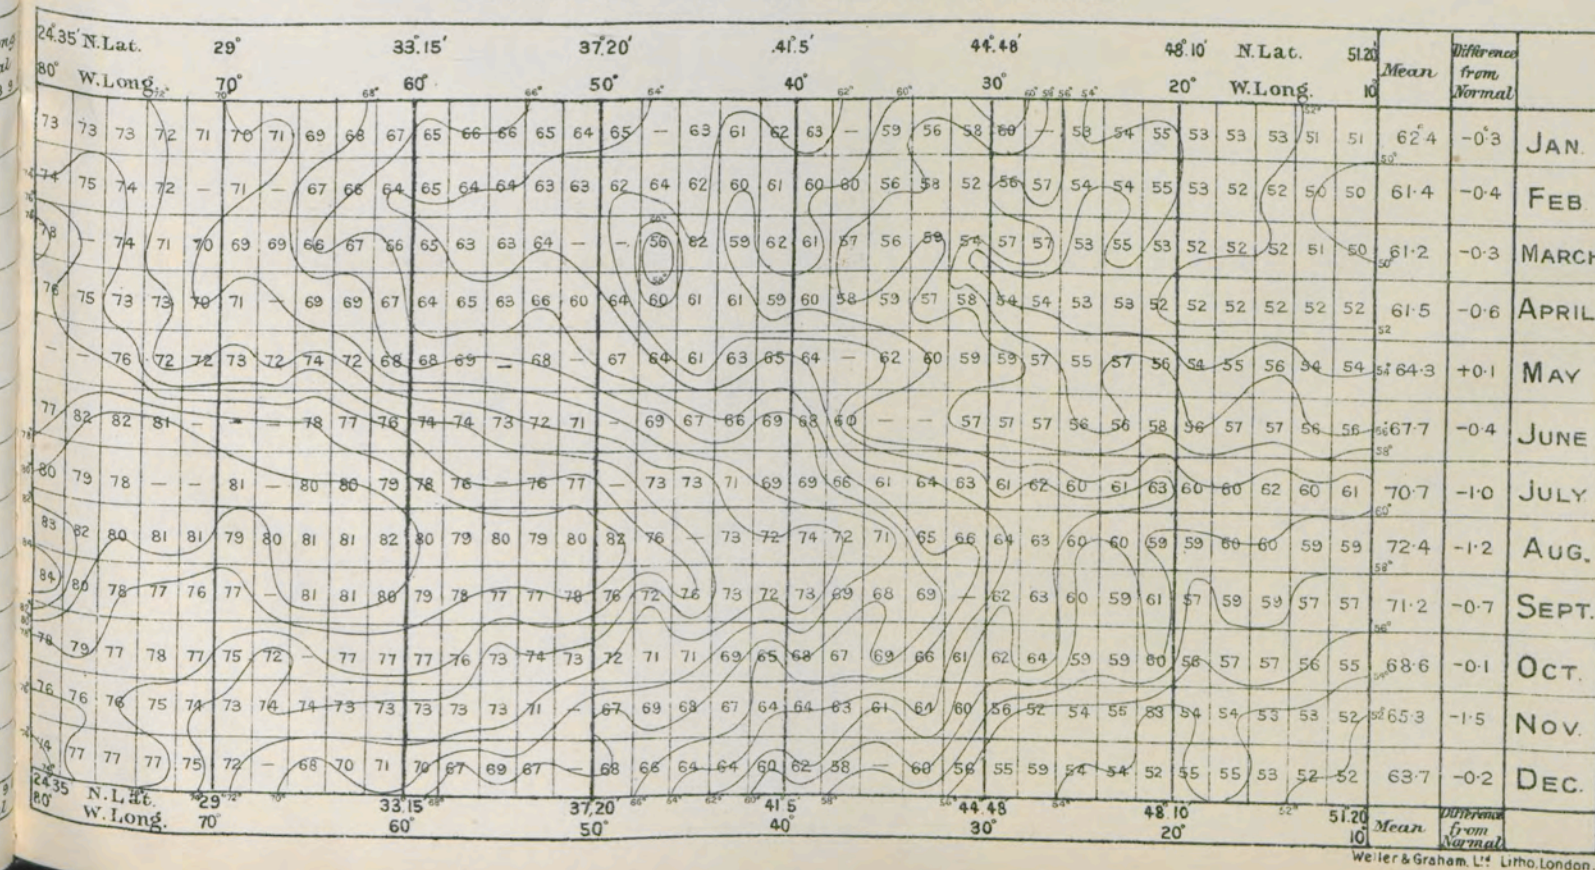 24.35' N.Lat. 29° 33.15' 37.20' 41.5' 44.48' 48.10' N.Lat. 51.20' Mean Difference from Normal
80° W.Long. 70° 60° 50° 40° 30° 20° W.Long. 10°
72° 70° 68° 66° 64° 62° 60° 60° 58° 56° 54° 52°
73 73 73 72 71 70 71 69 68 67 65 66 66 65 64 65 — 63 61 62 63 — 59 56 58 60 — 53 54 55 53 53 53 51 51 62°4 -0°3 JAN.
50°
74 75 74 72 — 71 — 67 66 64 65 64 64 63 63 62 64 62 60 61 60 60 56 58 52 56 57 54 54 55 53 52 52 50 50 61·4 -0·4 FEB.
78 — 74 71 70 69 69 66 67 66 65 63 63 64 — — 56 62 59 62 61 57 56 59 54 57 57 53 55 53 52 52 52 51 50 61·2 -0·3 MARCH
50°
76 75 73 73 70 71 — 69 69 67 64 65 63 66 60 64 60 61 61 59 60 58 59 57 58 54 54 53 53 52 52 52 52 52 52 61·5 -0·6 APRIL
52
— — 76 72 72 73 72 74 72 68 68 69 — 68 — 67 64 61 63 65 64 — 62 60 59 59 57 55 57 56 54 55 56 54 54 54° 64·3 +0·1 MAY
77 82 82 81 — — — 78 77 76 74 74 73 72 71 — 69 67 66 69 68 60 — — 57 57 57 56 56 58 56 57 57 56 56 56° 67·7 -0·4 JUNE
58°
80 79 78 — — 81 — 80 80 79 78 76 — 76 77 — 73 73 71 69 69 66 61 64 63 61 62 60 61 63 60 60 62 60 61 70·7 -1·0 JULY
60°
83 82 80 81 81 79 80 81 81 82 80 79 80 79 80 82 76 — 73 72 74 72 71 65 66 64 63 60 60 59 59 60 60 59 59 72·4 -1·2 AUG.
58°
84 80 78 77 76 77 — 81 81 80 79 78 77 77 78 76 72 76 73 72 73 69 68 69 — 62 63 60 59 61 57 59 59 57 57 71·2 -0·7 SEPT.
56°
78 79 77 78 77 75 72 — 77 77 77 76 73 74 73 72 71 71 69 65 68 67 69 66 61 62 64 59 59 60 58 57 57 56 55 54° 68·6 -0·1 OCT.
76 76 76 75 74 73 74 74 73 73 73 73 73 71 — 67 69 68 67 64 64 63 61 64 60 56 52 54 55 53 54 54 53 53 52 52° 65·3 -1·5 NOV.
77 77 77 75 72 — 68 70 71 70 67 69 67 — 68 66 64 64 60 62 58 — 60 56 55 59 54 54 52 55 55 53 52 52 63·7 -0·2 DEC.
72° 70° 68° 66° 64° 62° 60° 58° 56° 54° 52°
24.35 N.Lat. 29° 33.15' 37.20' 41.5' 44.48 48.10 51.20 Mean Difference from Normal
80° W.Long. 70° 60° 50° 40° 30° 20° 10°
Weller & Graham, Ltd. Litho, London.